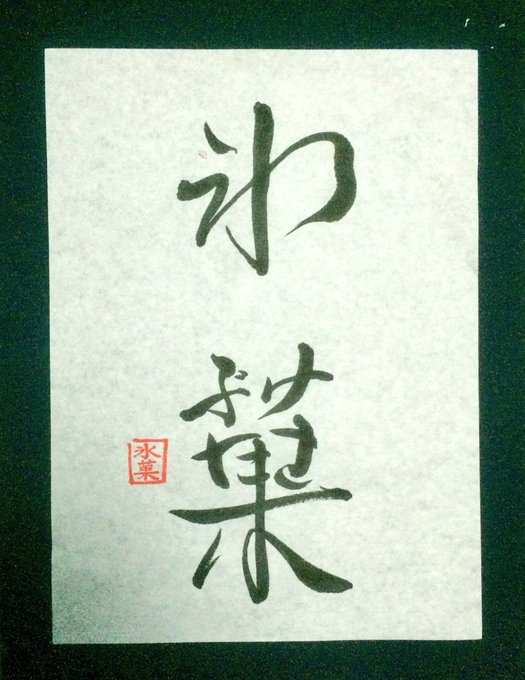 氷菓
氷菓